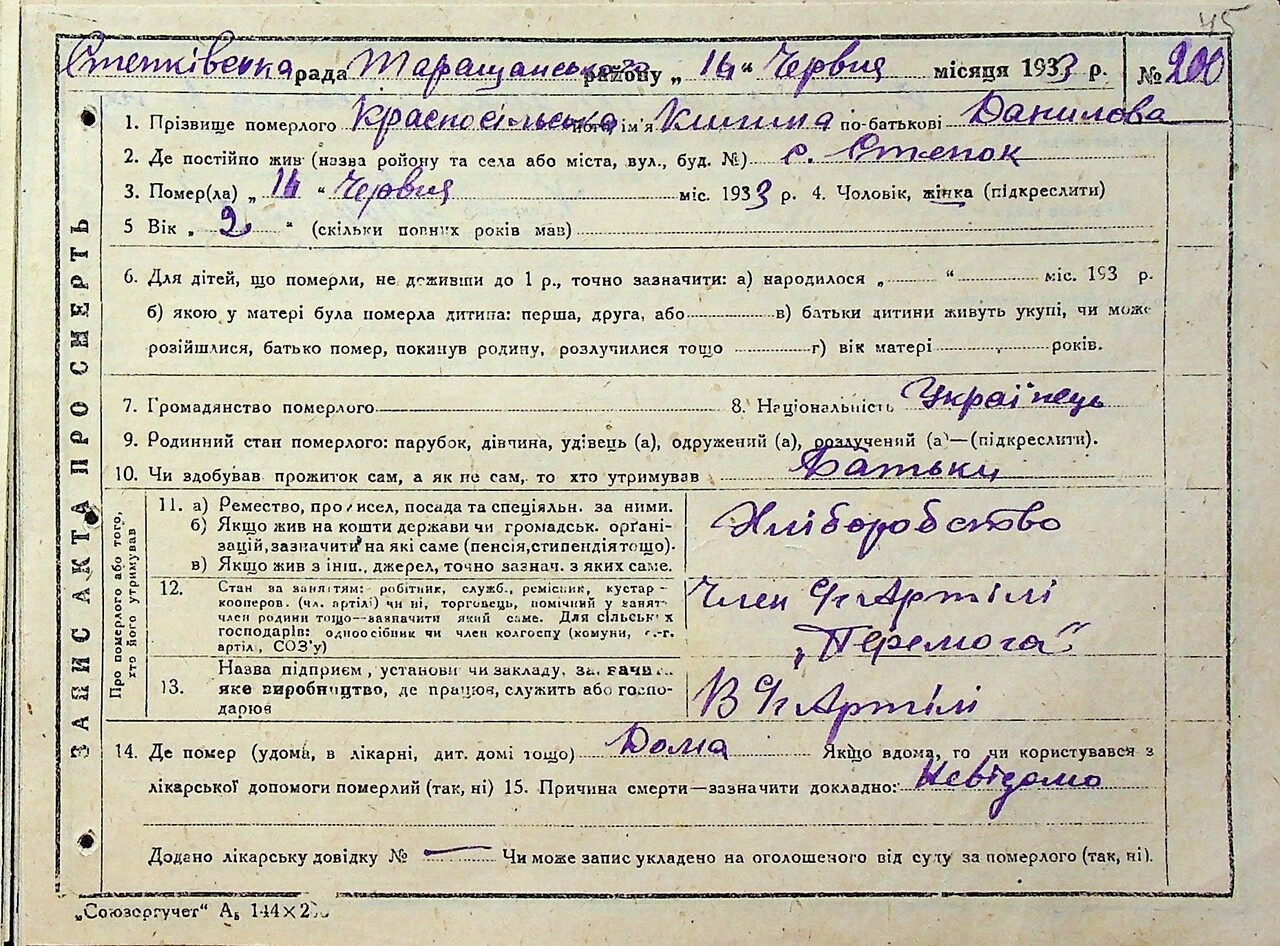 45
Степківська рада Таращанського району „ 14 “ Червня місяця 1933 р. № 200
ЗАПИС АКТА ПРО СМЕРТЬ
1. Прізвище померлого Красносільська його ім'я по-батькові Данилова
2. Де постійно жив (назва ройону та села або міста, вул., буд. №) с. Степок
3. Помер(ла) „ “ Червня міс. 1933 р. 4. Чоловік, жінка (підкреслити)
5 Вік „ 2 “ (скільки повних років мав)
6. Для дітей, що померли, не доживши до 1 р., точно зазначити: а) народилося „ “ міс. 193 р.
б) якою у матері була померла дитина: перша, друга, або в) батьки дитини живуть укупі, чи може
розійшлися, батько помер, покинув родину, розлучилися тощо г) вік матері років.
7. Громадянство померлого 8. Національність Українець
9. Родинний стан померлого: парубок, дівчина, удівець (а), одружений (а), розлучений (а)—(підкреслити).
10. Чи здобував прожиток сам, а як не сам, то хто утримував Батьки
Про померлого або того, хто його утримував
11. а) Ремество, промисел, посада та спеціяльн. за ними.
б) Якщо жив на кошти держави чи громадськ. орґані-
зацій, зазначити на які саме (пенсія, стипендія тощо).
в) Якщо жив з інш., джерел, точно зазнач. з яких саме.
Хліборобство
12. Стан за заняттям: робітник, служб., ремісник, кустар-
кооперов. (чл. артілі) чи ні, торговець, помічний у занят.
член родини тощо—зазначити який саме. Для сільськ х
господарів: одноосібник чи член колгоспу (комуни, с.-г.
артіл, СОЗ'у)
Член С/г Артілі
„Перемога“
13. Назва підприєм., установи чи закладу, зазначи..
яке виробництво, де працює, служить або госпо-
дарює
В С/г Артілі
14. Де помер (удома, в лікарні, дит. домі тощо) Дома Якщо вдома, то чи користувався з
лікарської допомоги померлий (так, ні) 15. Причина смерти—зазначити докладно: Невідомо
Додано лікарську довідку № — Чи може запис укладено на оголошеного від суду за померлого (так, ні).
„Союзоргучет“ А₅ 144×2